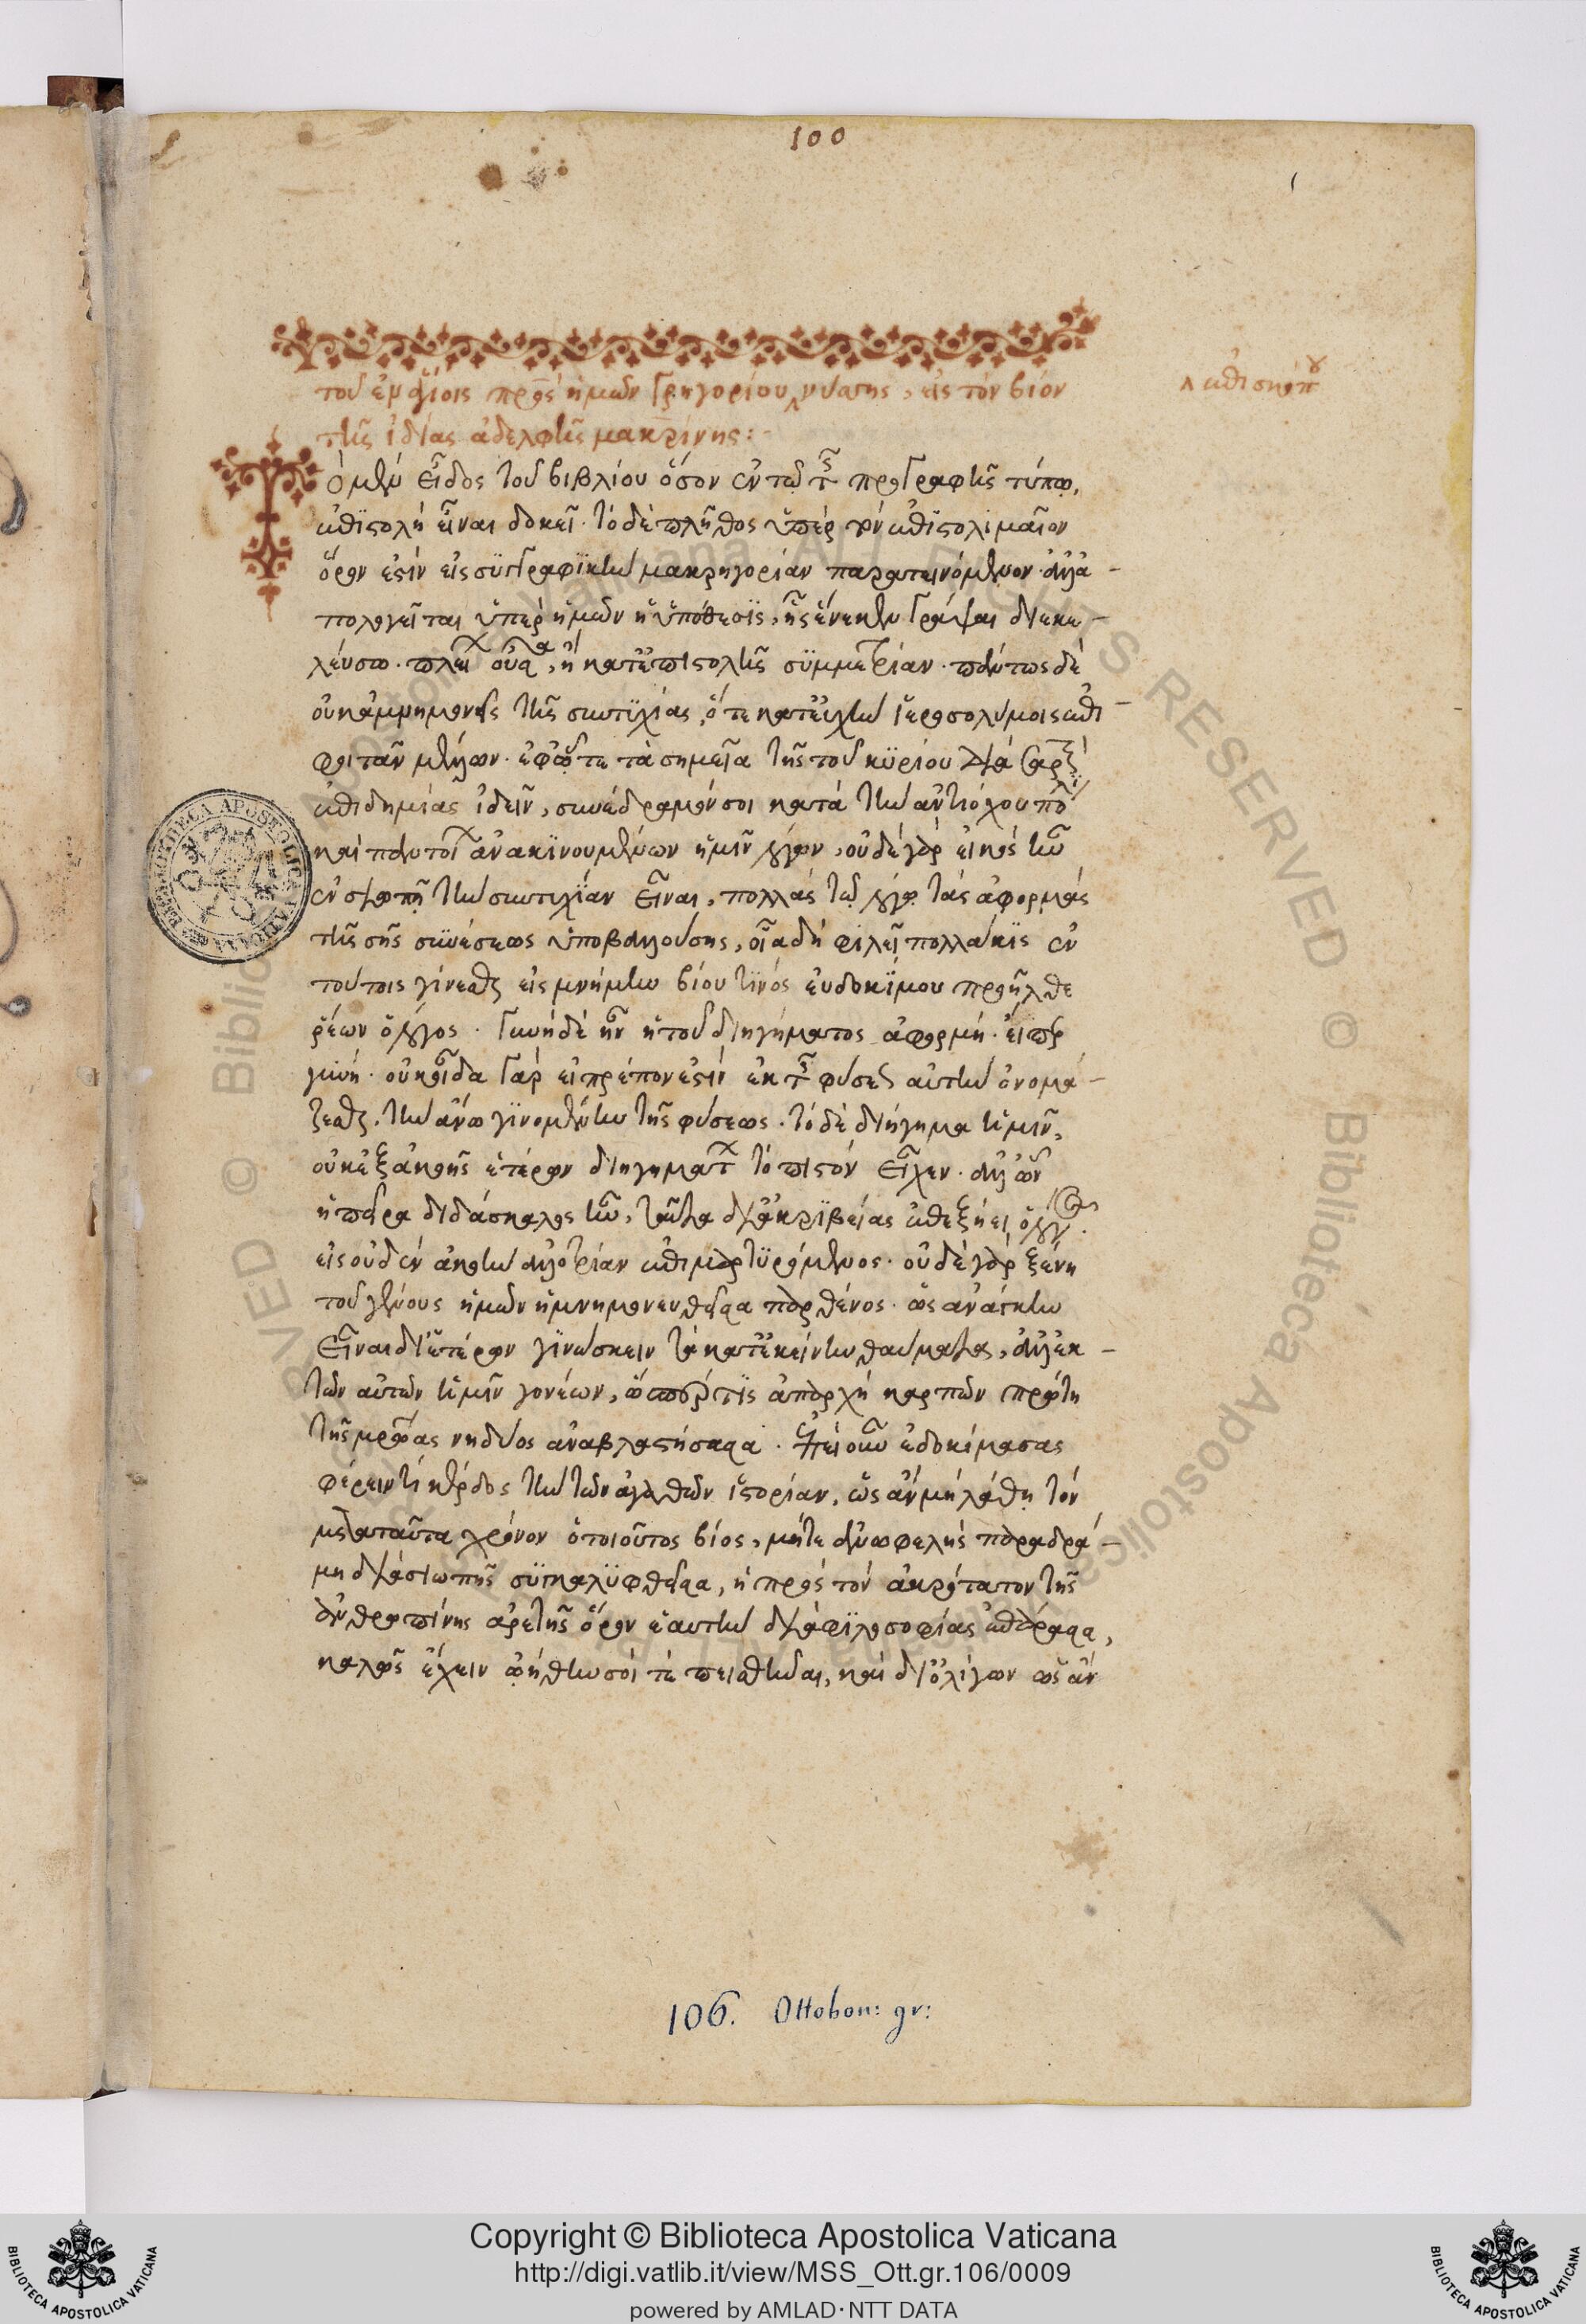 100
1
τοῦ ἐν ἁγίοις πρς ἡμῶν Γρηγορίου νύσσης, εἰς τὸν βίον
ἐπισκόπου
τῆς ἰδίας ἀδελφῆς μακρίνης:-
Τὸ μὲν εἶδος τοῦ βιβλίου ὅσον ἐν τῷ τῆς προγραφῆς τύπῳ,
ἐπιστολὴ εἶναι δοκεῖ. τὸ δὲ πλῆθος ὑπὲρ τὸν ἐπιστολιμαῖον
ὅρον ἐστὶν εἰς συγγραφικὴν μακρηγορίαν παρατεινόμενον. ἀλλ' ἀ-
πολογεῖται ὑπὲρ ἡμῶν ἡ ὑπόθεσις, ἧς ἕνεκεν γράψαι διεκε-
λεύσω. πλείων οὖσα, ἢ κατ' ἐπιστολῆς συμμετρίαν. πάντως δὲ
οὐκ ἀμνημονεῖς τῆς συντυχίας, ὅτε κατ' εὐχὴν ἱεροσολύμοις ἐπι-
φοιτᾶν μέλλων. ἐφ' ᾧτε τὰ σημεῖα τῆς τοῦ κυρίου διὰ σαρκὸς
ἐπιδημίας ἰδεῖν, συνέδραμόν σοι κατὰ τὴν ἀντιόχου πόλιν
καὶ παντοίων ἀνακινουμένων ἡμῖν λόγων, οὐδὲ γὰρ εἰκὸς ἦν
ἐν σιωπῇ τὴν συντυχίαν εἶναι, πολλὰς τῷ λόγῳ τὰς ἀφορμὰς
τῆς σῆς συνέσεως ὑποβαλλούσης, οἷα δὴ φιλεῖ πολλάκις ἐν
τούτοις γίνεσθαι εἰς μνήμην βίου τινὸς εὐδοκίμου προῆλθε
ῥέων ὁ λόγος. γυνὴ δὲ ἦν ἡ τοῦ διηγήματος ἀφορμή. εἴπερ
γυνή. οὐκ οἶδα γὰρ εἰ πρέπον ἐστὶν ἐκ τῆς φύσεως αὐτὴν ὀνομά-
ζεσθαι. τὴν ἄνω γινομένην τῆς φύσεως. τὸ δὲ διήγημα ἡμῖν,
οὐκ ἐξ ἀκοῆς ἑτέρων διηγημάτων τὸ πιστὸν εἶχεν. ἀλλ' ὧν
ἡ πεῖρα διδάσκαλος ἦν, ταῦτα δι' ἀκριβείας ἐπεξῄει ὁ λόγος.
εἰς οὐδὲν ἀκοὴν ἀλλοτρίαν ἐπιμαρτυρόμενος. οὐδὲ γὰρ ξένη
τοῦ γένους ἡμῶν ἡ μνημονευθεῖσα παρθένος. ὡς ἀνάγκην
εἶναι δι' ἑτέρων γινώσκειν τὰ κατ' ἐκείνην θαύματα, ἀλλ' ἐκ
τῶν αὐτῶν ἡμῖν γονέων, ὥσπερ τις ἀπαρχὴ καρπῶν πρώτη
τῆς μητρῴας νηδύος ἀναβλαστήσασα. ἐπεὶ οὖν ἐδοκίμασας
φέρειν τι κέρδος τὴν τῶν ἀγαθῶν ἱστορίαν, ὡς ἂν μὴ λάθῃ τὸν
μετὰ ταῦτα χρόνον ὁ τοιοῦτος βίος, μήτε ἀνωφελὴς παραδρά-
μῃ διὰ σιωπῆς συγκαλυφθεῖσα, ἡ πρὸς τὸν ἀκρότατον τῆς
ἀνθρωπίνης ἀρετῆς ὅρον ἑαυτὴν διὰ φιλοσοφίας ἐπάρασα,
καλῶς ἔχειν ᾠήθην σοί τε πεισθῆναι, καὶ δι' ὀλίγων ὡς ἂν
106. Ottobon: gr:
Copyright © Biblioteca Apostolica Vaticana
http://digi.vatlib.it/view/MSS_Ott.gr.106/0009
powered by AMLAD·NTT DATA
BIBLIOTECA APOSTOLICA VATICANA
BIBLIOTECA APOSTOLICA VATICANA